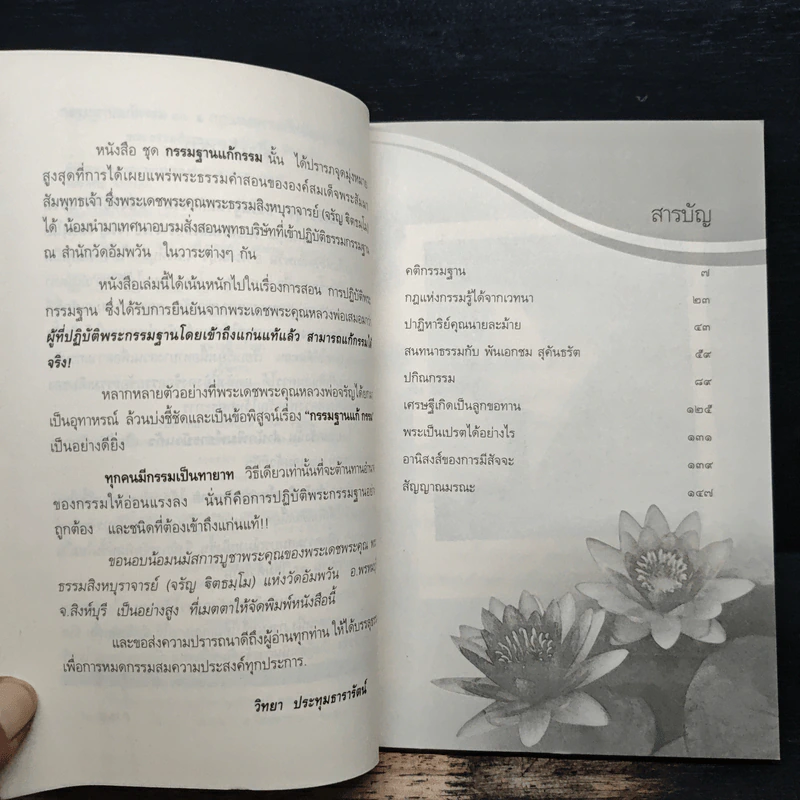 หนังสือ ชุด กรรมฐานแก้กรรม นั้น ได้ปรารภจุดมุ่งหมาย
สูงสุดที่การได้เผยแพร่พระธรรมคำสอนขององค์สมเด็จพระสัมมา
สัมพุทธเจ้า ซึ่งพระเดชพระคุณพระธรรมสิงหบุราจารย์ (จรัญ ฐิตธมฺโม)
ได้ น้อมนำมาเทศนาอบรมสั่งสอนพุทธบริษัทที่เข้าปฏิบัติธรรมกรรมฐาน
ณ สำนักวัดอัมพวัน ในวาระต่างๆ กัน
หนังสือเล่มนี้ได้เน้นหนักไปในเรื่องการสอน การปฏิบัติพระ
กรรมฐาน ซึ่งได้รับการยืนยันจากพระเดชพระคุณหลวงพ่อเสมอมา
ผู้ที่ปฏิบัติพระกรรมฐานโดยเข้าถึงแก่นแท้แล้ว สามารถแก้กรรมได้
จริง!
หลากหลายตัวอย่างที่พระเดชพระคุณหลวงพ่อจรัญได้ยก
เป็นอุทาหรณ์ ล้วนบ่งชี้ชัดและเป็นข้อพิสูจน์เรื่อง "กรรมฐานแก้กรรม"
เป็นอย่างดียิ่ง
ทุกคนมีกรรมเป็นทายาท วิธีเดียวเท่านั้นที่จะต้านทานอำนาจ
ของกรรมให้อ่อนแรงลง นั่นก็คือการปฏิบัติพระกรรมฐานอย่าง
ถูกต้อง และชนิดที่ต้องเข้าถึงแก่นแท้!!
ขอนอบน้อมนมัสการบูชาพระคุณของพระเดชพระคุณ พระ
ธรรมสิงหบุราจารย์ (จรัญ ฐิตธมฺโม) แห่งวัดอัมพวัน อ.พรหมบุรี
จ.สิงห์บุรี เป็นอย่างสูง ที่เมตตาให้จัดพิมพ์หนังสือนี้
และขอส่งความปรารถนาดีถึงผู้อ่านทุกท่าน ให้ได้บรรลุธรรม
เพื่อการหมดกรรมสมความประสงค์ทุกประการ.
วิทยา ประทุมธารารัตน์
สารบัญ
คติกรรมฐาน ๗
กฎแห่งกรรมรู้ได้จากเวทนา ๒๓
ปาฏิหาริย์คุณนายละม้าย ๔๓
สนทนาธรรมกับ พันเอกชม สุคันธรัต ๕๙
ปกิณกรรม ๘๙
เศรษฐีเกิดเป็นลูกขอทาน ๑๒๕
พระเป็นเปรตได้อย่างไร ๑๓๑
อานิสงส์ของการมีสัจจะ ๑๓๙
สัญญาณมรณะ ๑๔๗